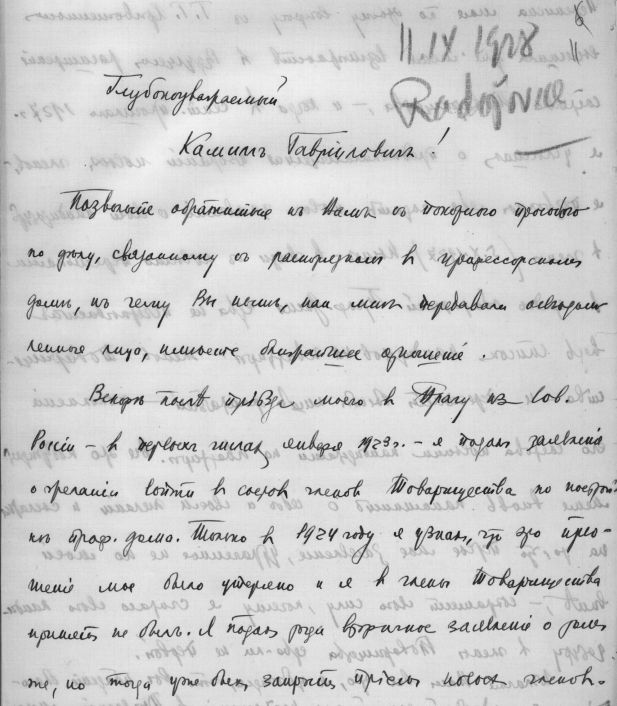 11.IX 1928
Глубокоуважаемый
Камилъ Гавриловичъ!
Позвольте обратиться къ Вамъ съ покорной просьбой
по дѣлу, связанному съ распорядкомъ въ профессорскомъ
домѣ, къ чему Вы нынѣ, какъ мнѣ передавали освѣдом-
ленные лица, имѣете ближайшее отношеніе.
Вскорѣ послѣ пріѣзда моего въ Прагу изъ Сов.
Россіи – въ первыхъ числахъ января 1923 г. – я подалъ заявленіе
о желаніи войти въ составъ членовъ Товарищества по построй-
кѣ проф. дома. Только въ 1924 году я узналъ, что это
шеніе мое было утеряно и я въ члены Товарищества
принятъ не былъ. Я подалъ тогда вторичное заявленіе о томъ
же, но тогда уже былъ закрытъ пріемъ новыхъ членовъ.